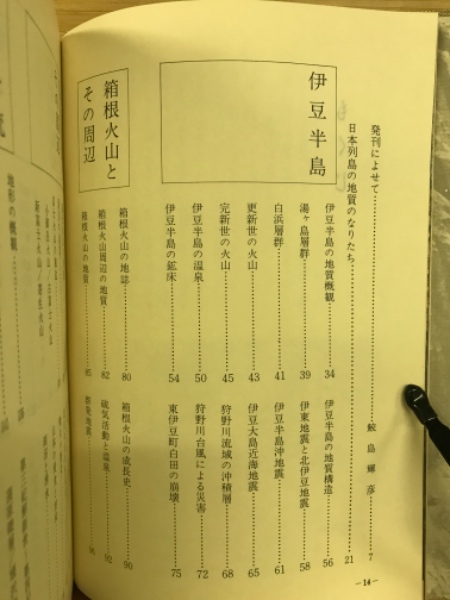 発刊によせて……………鮫島輝彦……7
日本列島の地質のなりたち……………21
伊豆半島
伊豆半島の地質概観……………34
湯ヶ島層群……………39
白浜層群……………41
更新世の火山……………43
完新世の火山……………45
伊豆半島の温泉……………50
伊豆半島の鉱床……………54
伊豆半島の地質構造……………56
伊東地震と北伊豆地震……………58
伊豆半島沖地震……………61
伊豆大島近海地震……………65
狩野川流域の沖積層……………68
狩野川台風による災害……………72
東伊豆町白田の崩壊……………75
箱根火山と
その周辺
箱根火山の地誌……………80
箱根火山周辺の地質……………82
箱根火山の地質……………85
箱根火山の成長史……………90
磁気活動と温泉……………92
地形の概観
—14—